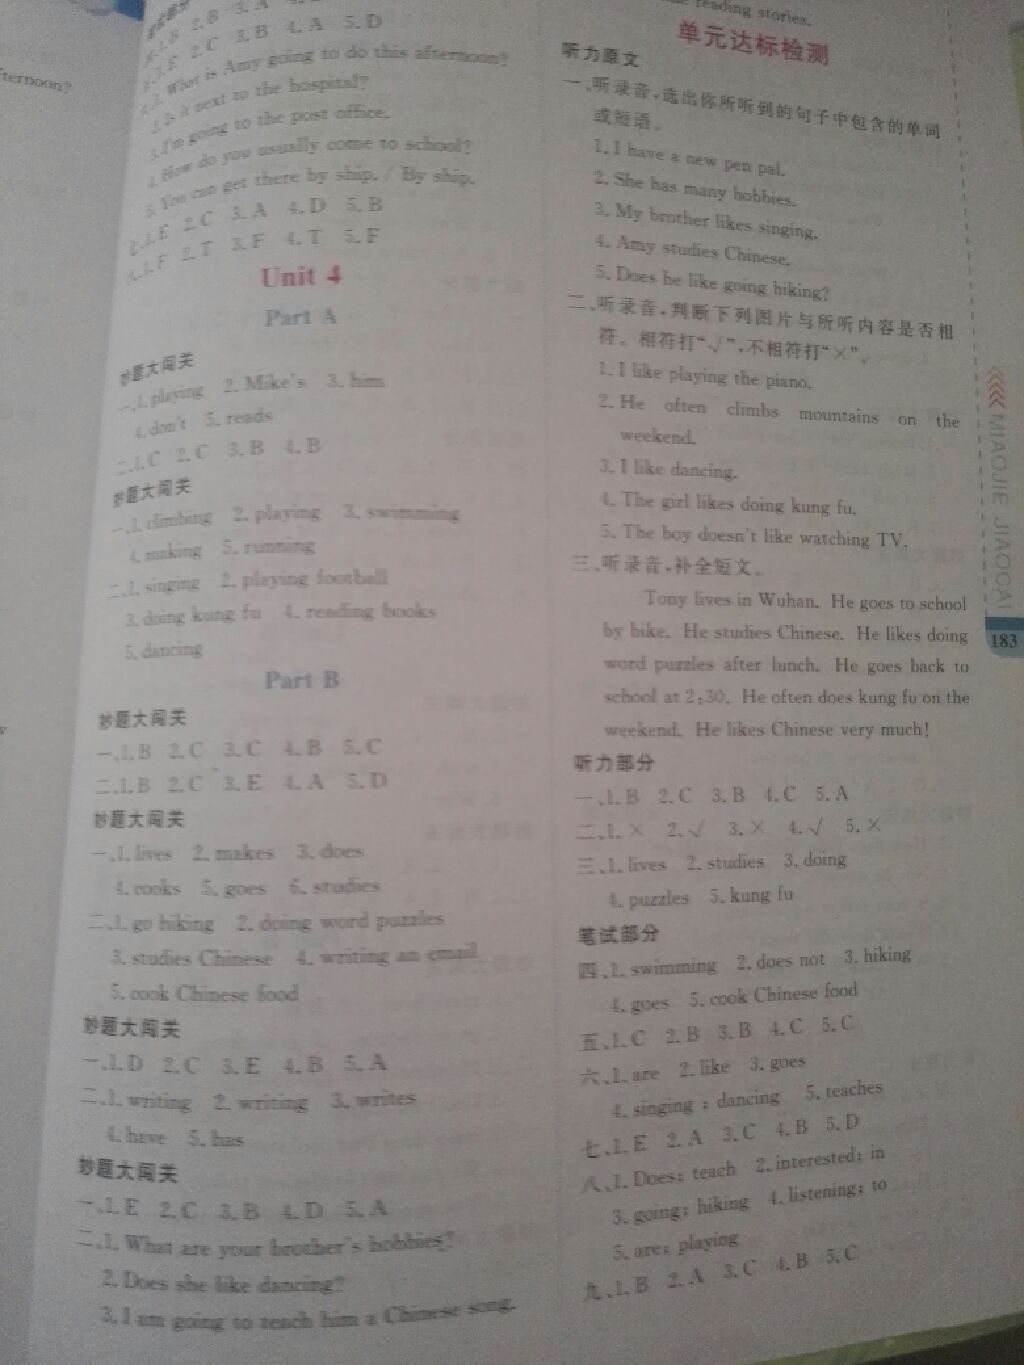 1.B 2.B 3.A 4. 5.D
1.E 2.C 3.B 4.A 5.D
1. What is Amy going to do this afternoon?
2. Is it next to the hospital?
3. I'm going to the post office.
4. How do you usually come to school?
5. You can get there by ship. / By ship.
1.E 2.C 3.A 4.D 5.B
1.F 2.T 3.F 4.T 5.F
Unit 4
Part A
妙题大闯关
一、1. playing 2. Mike's 3. him
4. don't 5. reads
二、1.C 2.C 3.B 4.B
妙题大闯关
一、1. climbing 2. playing 3. swimming
4. making 5. running
二、1. singing 2. playing football
3. doing kung fu 4. reading books
5. dancing
Part B
妙题大闯关
一、1.B 2.C 3.C 4.B 5.C
二、1.B 2.C 3.E 4.A 5.D
妙题大闯关
一、1. lives 2. makes 3. does
4. cooks 5. goes 6. studies
二、1. go hiking 2. doing word puzzles
3. studies Chinese 4. writing an email
5. cook Chinese food
妙题大闯关
一、1.D 2.C 3.E 4.B 5.A
二、1. writing 2. writing 3. writes
4. have 5. has
妙题大闯关
一、1.E 2.C 3.B 4.D 5.A
二、1. What are your brother's hobbies?
2. Does she like dancing?
3. I am going to teach him a Chinese song.
reading stories.
单元达标检测
听力原文
一、听录音,选出你所听到的句子中包含的单词
或短语。
1. I have a new pen pal.
2. She has many hobbies.
3. My brother likes singing.
4. Amy studies Chinese.
5. Does he like going hiking?
二、听录音,判断下列图片与所听内容是否相
符。相符打“√”,不相符打“×”。
1. I like playing the piano.
2. He often climbs mountains on the
weekend.
3. I like dancing.
4. The girl likes doing kung fu.
5. The boy doesn't like watching TV.
三、听录音,补全短文。
Tony lives in Wuhan. He goes to school
by bike. He studies Chinese. He likes doing
word puzzles after lunch. He goes back to
school at 2:30. He often does kung fu on the
weekend. He likes Chinese very much!
听力部分
一、1.B 2.C 3.B 4.C 5.A
二、1.× 2.√ 3.× 4.√ 5.×
三、1. lives 2. studies 3. doing
4. puzzles 5. kung fu
笔试部分
四、1. swimming 2. does not 3. hiking
4. goes 5. cook Chinese food
五、1.C 2.B 3.B 4.C 5.C
六、1. are 2. like 3. goes
4. singing; dancing 5. teaches
七、1.E 2.A 3.C 4.B 5.D
八、1. Does; teach 2. interested; in
3. going; hiking 4. listening; to
5. are; playing
九、1.B 2.A 3.C 4.B 5.C
MIAOJIE JIAOCAI
183